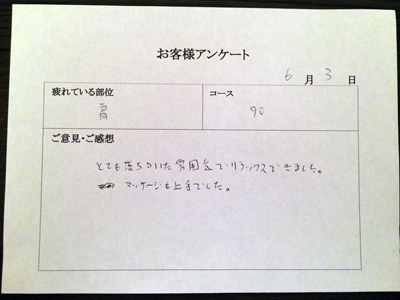 お客様アンケート
6月3日
疲れている部位
コース
肩
90
ご意見・ご感想
とても落ちついた雰囲気でリラックスできました。
マッサージも上手でした。